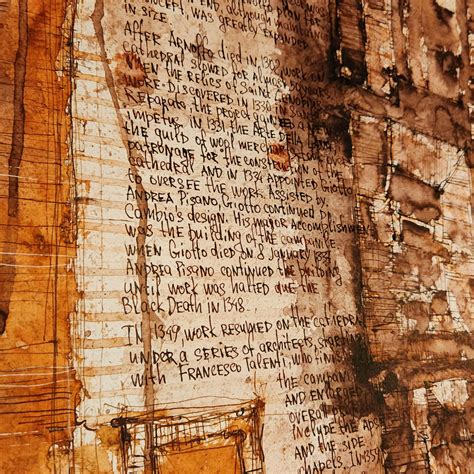 CONCEPT, WAS GREATLY EXPANDED
IN SIZE.
AFTER ARNOLFO DIED IN 1302, WORK ON
CATHEDRAL SLOWED FOR ALMOST
WHEN THE RELICS OF SAINT ZENOBIUS
DISCOVERED IN 1330 IN SANTA
REPARATA, THE PROJECT GAINED A NEW
IMPETUS. IN 1331, THE ARTE DELLA LANA,
THE GUILD OF WOOL MERCHANTS, TOOK OVER
PATRONAGE FOR THE CONSTRUCTION OF THE
CATHEDRAL AND IN 1334 APPOINTED GIOTTO
TO OVERSEE THE WORK. ASSISTED BY
ANDREA PISANO, GIOTTO CONTINUED DI
CAMBIO'S DESIGN. HIS MAJOR ACCOMPLISHMENT
WAS THE BUILDING OF THE CAMPANILE.
WHEN GIOTTO DIED ON 8 JANUARY 1337,
ANDREA PISANO CONTINUED THE BUILDING
UNTIL WORK WAS HALTED DUE THE
BLACK DEATH IN 1348.
IN 1349, WORK RESUMED ON THE CATHEDRAL
UNDER A SERIES OF ARCHITECTS, STARTING
WITH FRANCESCO TALENTI, WHO FINISHED
THE CAMPANILE
AND ENLARGED
OVERALL
INCLUDE THE APSE
AND THE SIDE
CHAPELS. IN 1359